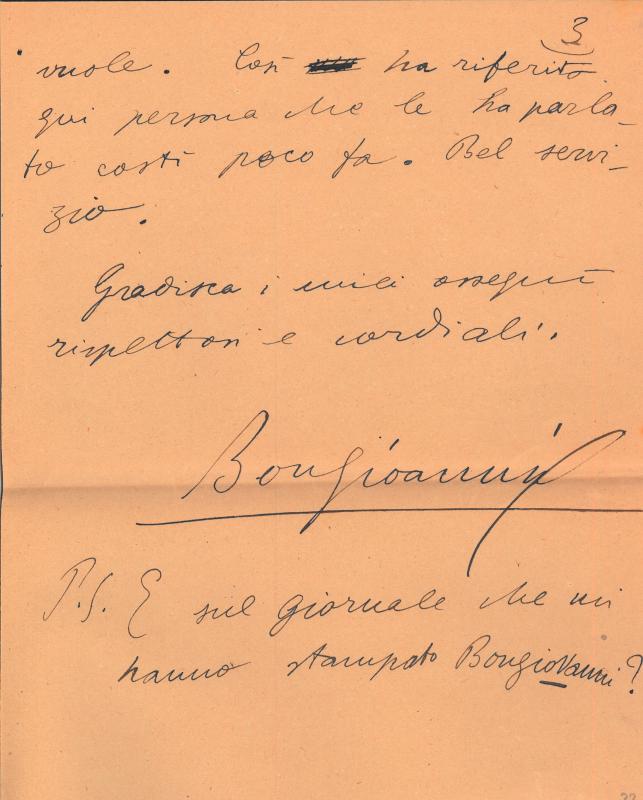 3
vuole. Così ha riferito
qui persona che le ha parla-
to costì poco fa. Bel servi-
zio.
Gradisca i miei ossequi
rispettosi e cordiali.
Bongioanni
P.S. E sul giornale che mi
hanno stampato Bongiovanni?